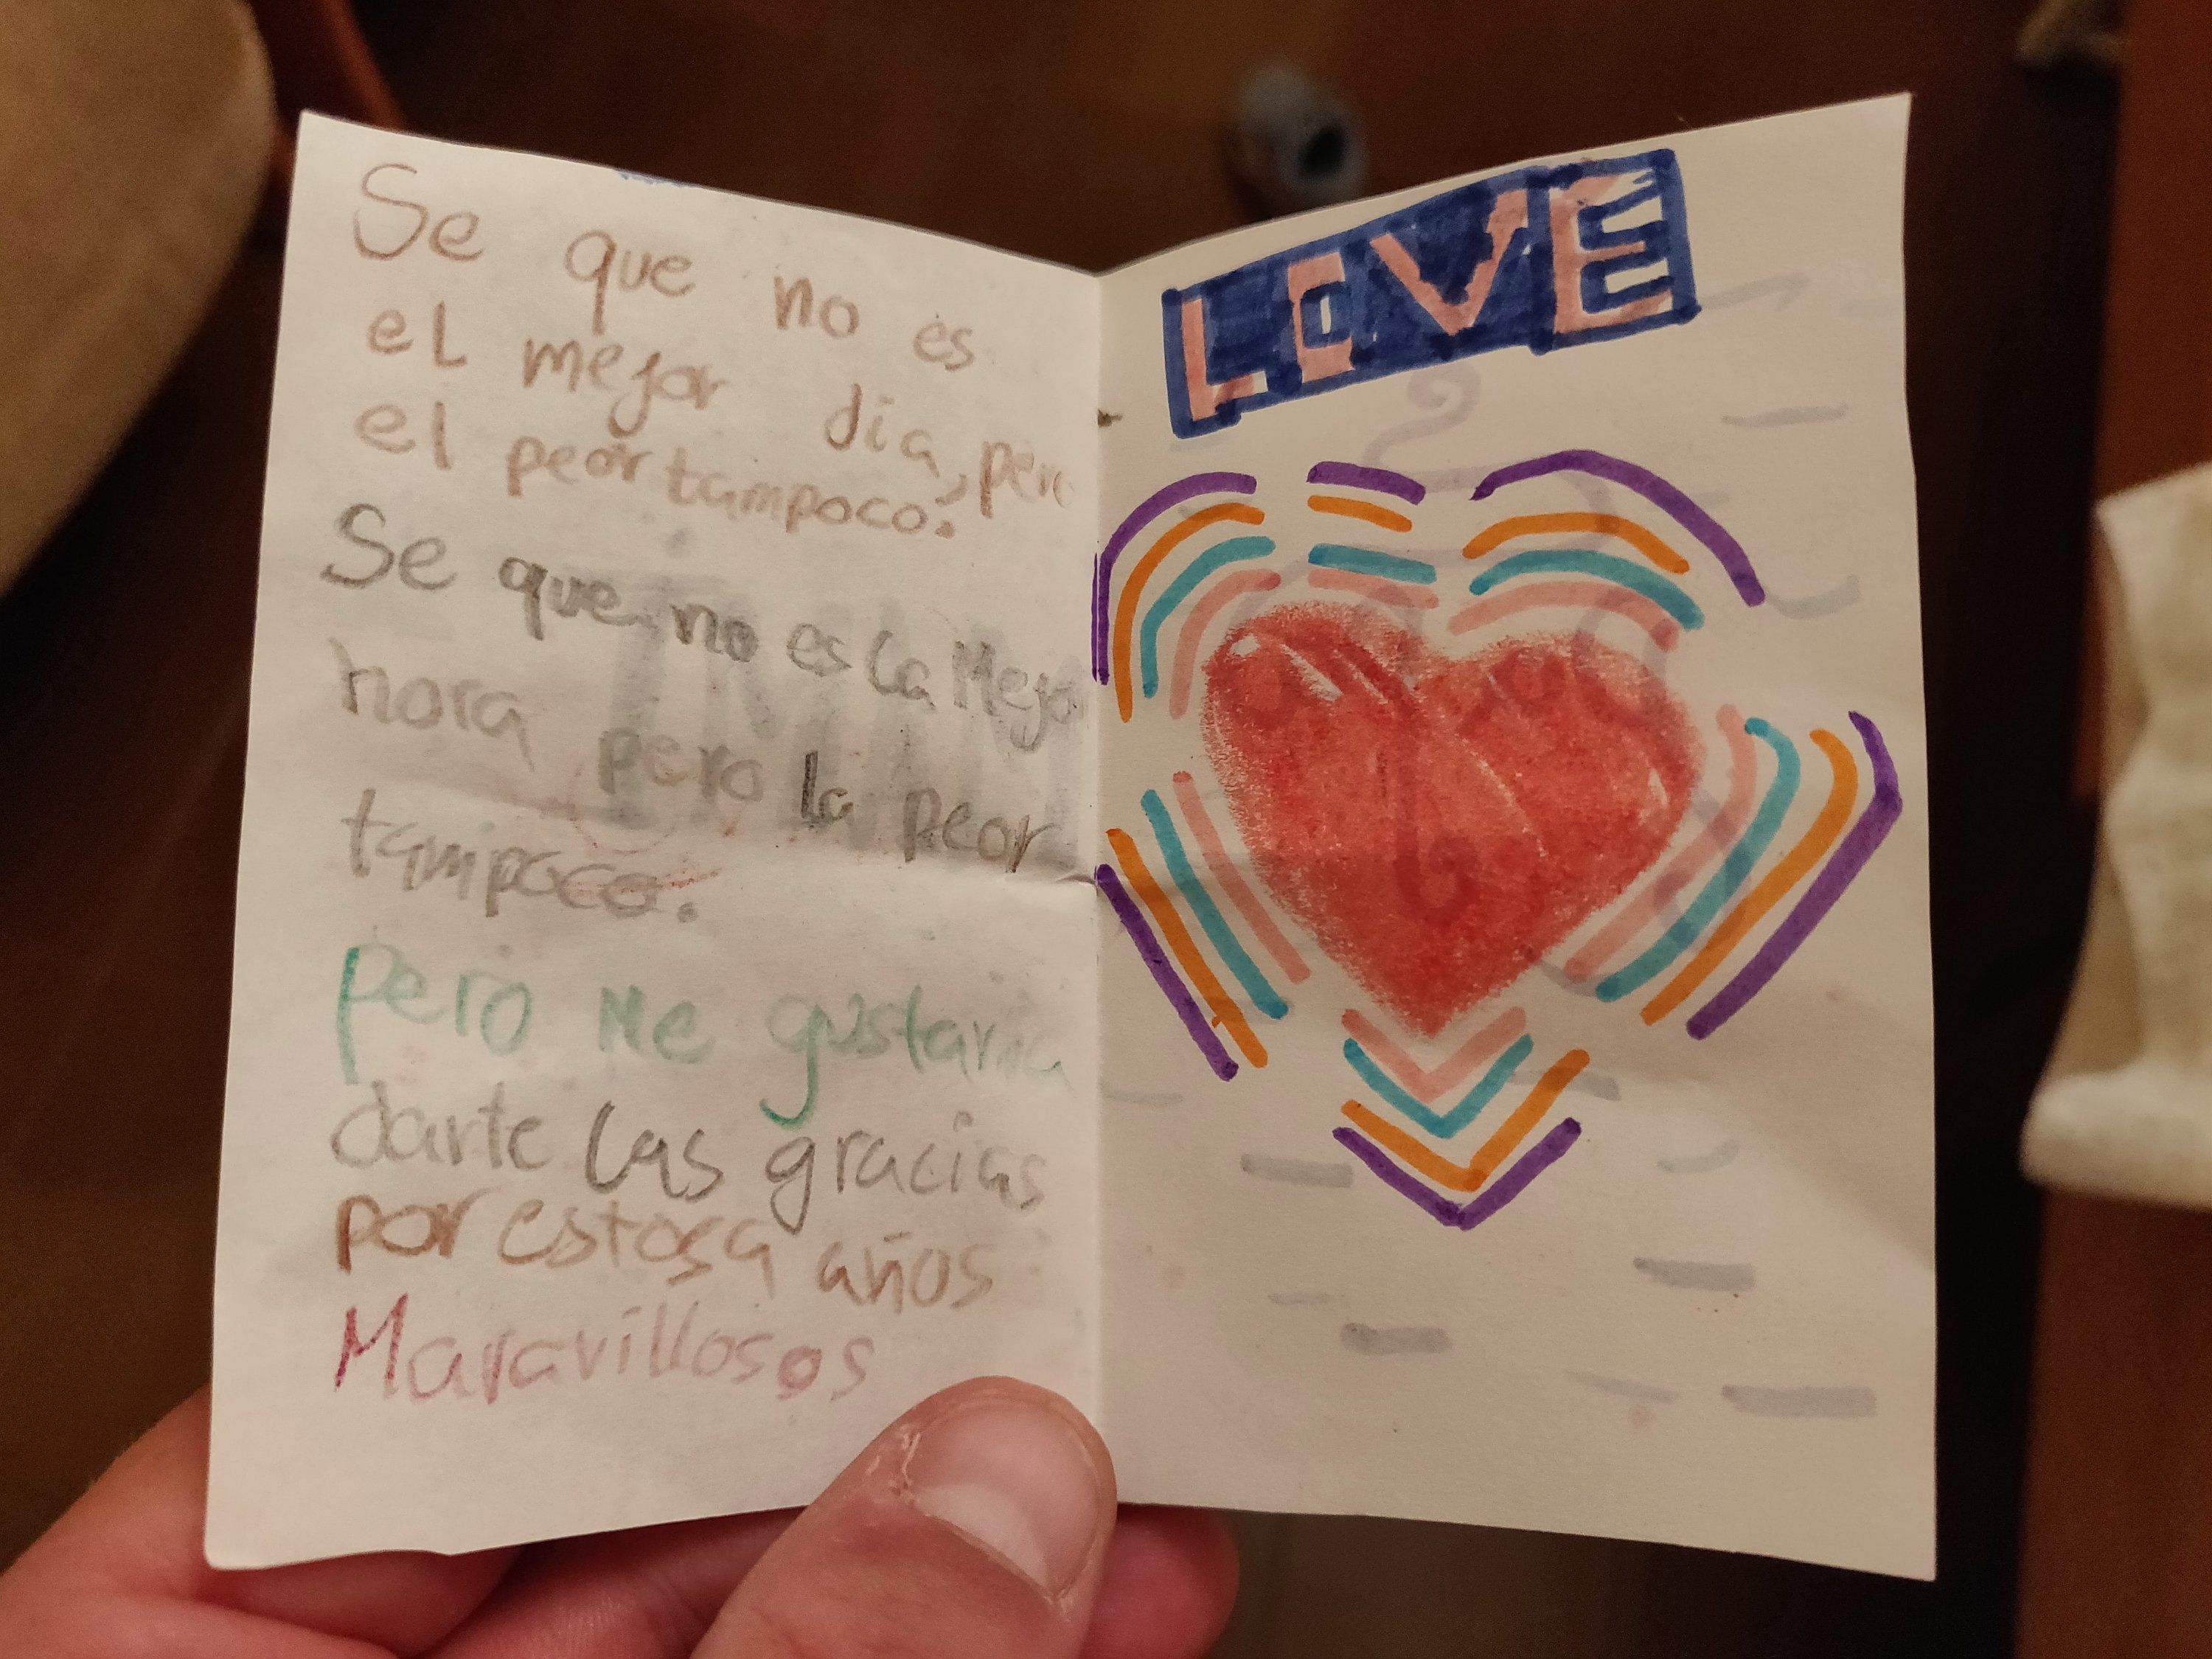 Se que no es
el mejor día, pero
el peor tampoco.
Se que no es la Mejor
hora pero la peor
tampoco.
pero Me gustaría
darte las gracias
por estos 9 años
Maravillosos
LOVE